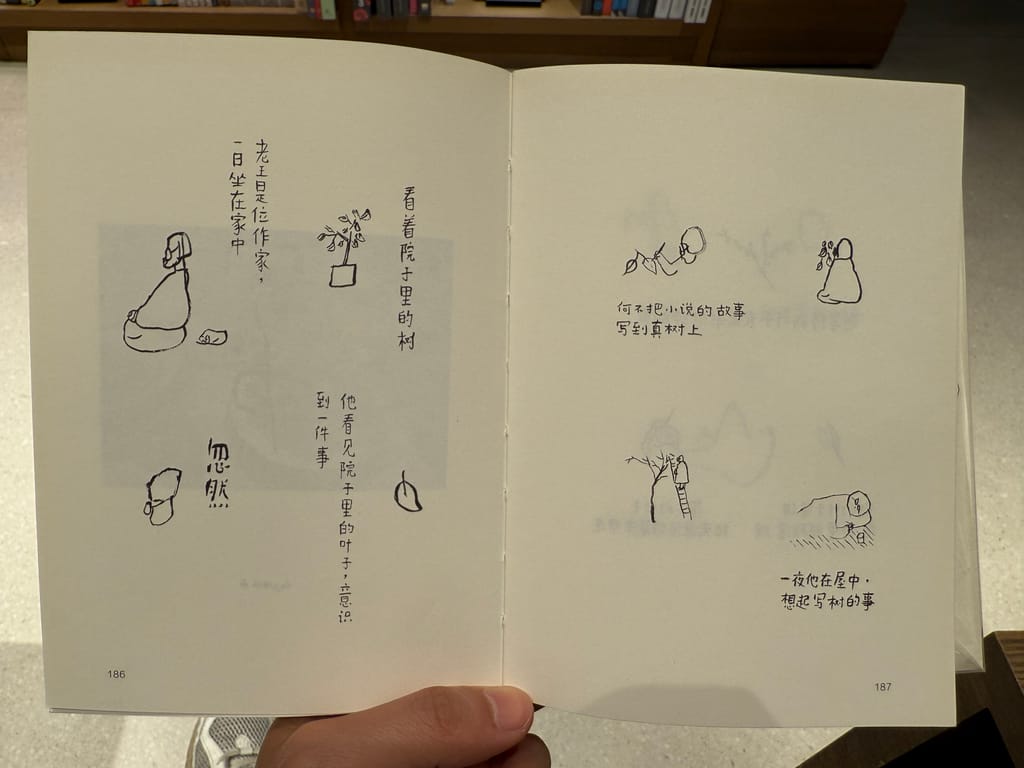 老王是位作家，
一日坐在家中
看着院子里的树
忽然
他看见院子里的叶子，意识
到一件事
186
何不把小说的故事
写到真树上
一夜他在屋中，
想起写树的事
187